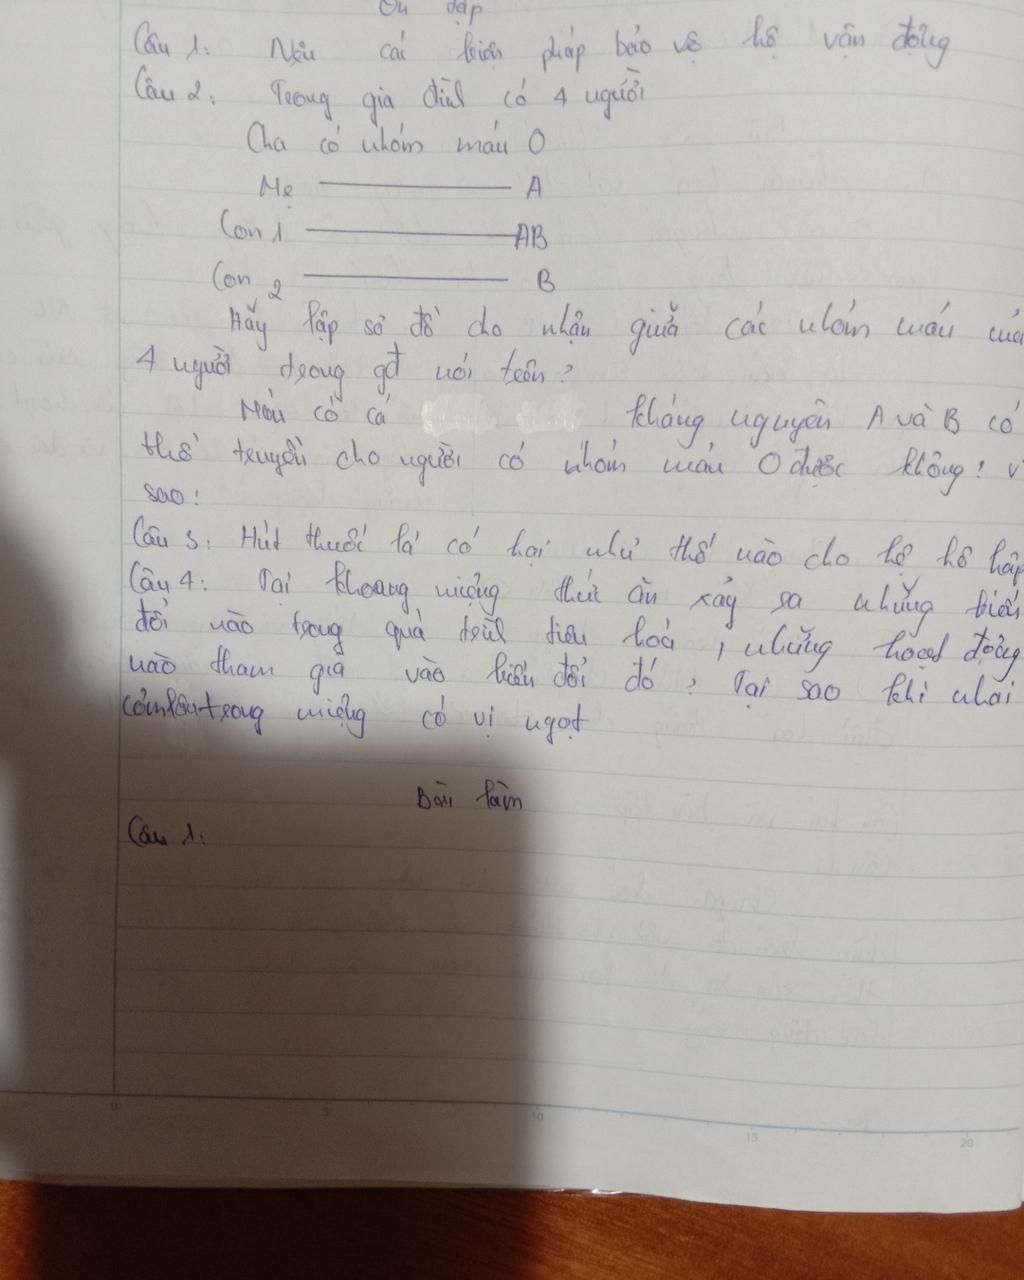 Ôn tập
Câu 1: Nêu các biện pháp bảo vệ hệ vận động
Câu 2: Trong gia đình có 4 người
Cha có nhóm máu O
Mẹ ——— A
Con 1 ——— AB
Con 2 ——— B
Hãy lập sơ đồ cho nhận giữa các nhóm máu của
4 người trong gđ nói trên?
Máu có cả kháng nguyên A và B có
thể truyền cho người có nhóm máu O được không? vì
sao?
Câu 3: Hút thuốc lá có hại như thế nào cho hệ hô hấp
Câu 4: Tại khoang miệng thức ăn xảy ra những biến
đổi nào trong quá trình tiêu hoá, những hoạt động
nào tham gia vào biến đổi đó? Tại sao khi nhai
cơm lâu trong miệng có vị ngọt
Bài làm
Câu 1:
0 5 10 15 20